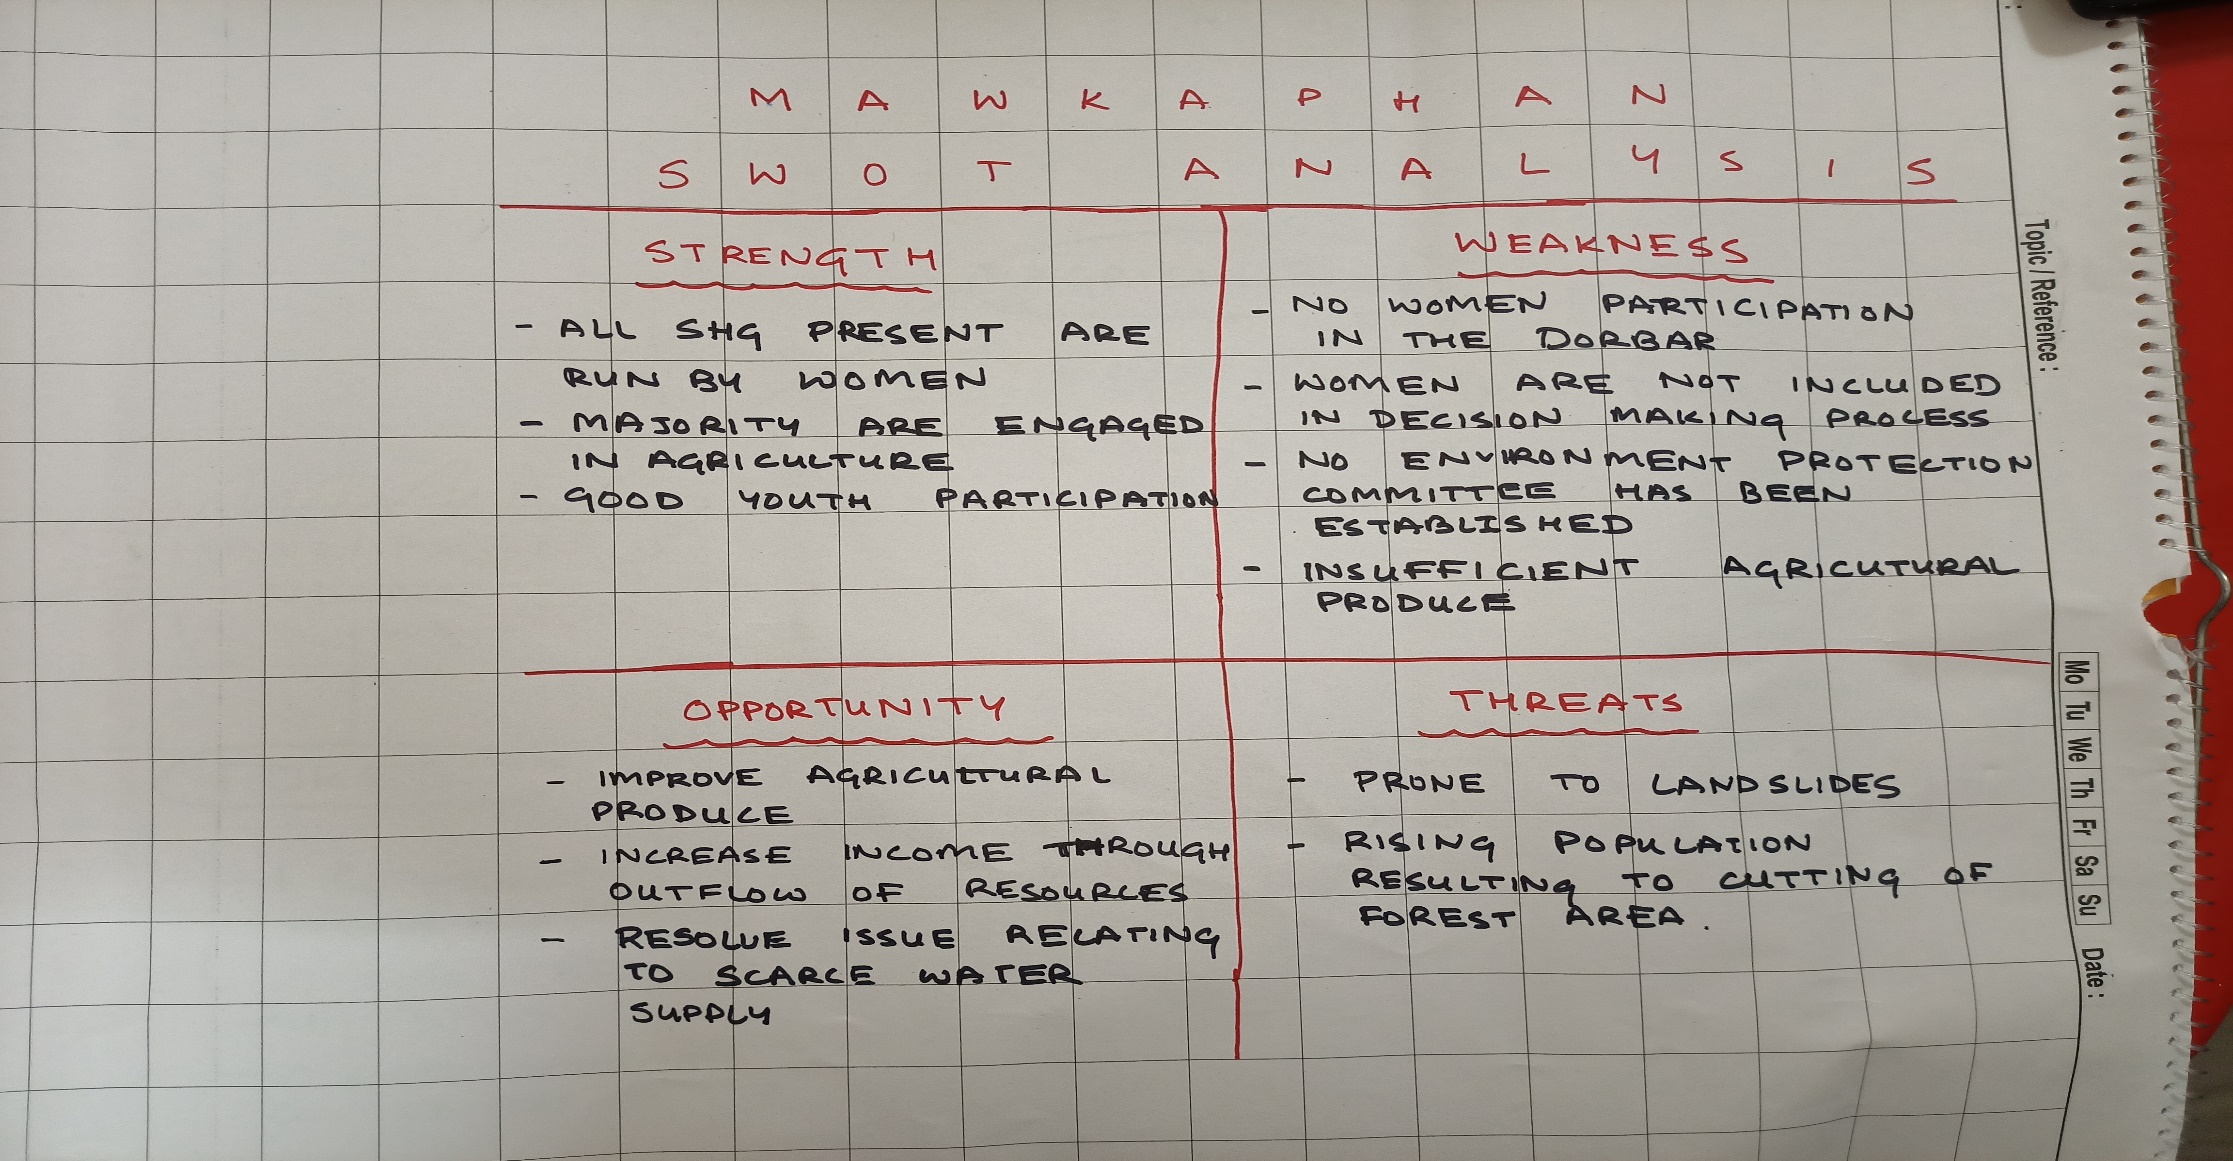 MAWKAPHAN
SWOT ANALYSIS
STRENGTH
- ALL SHG PRESENT ARE
RUN BY WOMEN
- MAJORITY ARE ENGAGED
IN AGRICULTURE
- GOOD YOUTH PARTICIPATION
WEAKNESS
- NO WOMEN PARTICIPATION
IN THE DORBAR
- WOMEN ARE NOT INCLUDED
IN DECISION MAKING PROCESS
- NO ENVIRONMENT PROTECTION
COMMITTEE HAS BEEN
ESTABLISHED
- INSUFFICIENT AGRICUTURAL
PRODUCE
OPPORTUNITY
- IMPROVE AGRICULTURAL
PRODUCE
- INCREASE INCOME THROUGH
OUTFLOW OF RESOURCES
- RESOLVE ISSUE RELATING
TO SCARCE WATER
SUPPLY
THREATS
- PRONE TO LANDSLIDES
- RISING POPULATION
RESULTING TO CUTTING OF
FOREST AREA.
Topic / Reference :
Mo Tu We Th Fr Sa Su Date :